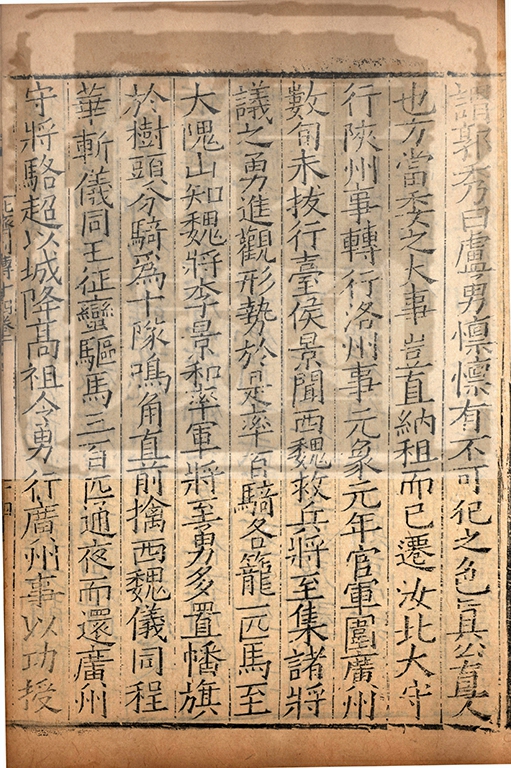 謂郭秀曰盧勇懔懔有不可犯之色真公直人
也方當委之大事豈直納租而已遷汝北太守
行陝州事轉行洛州事元象元年官軍圍廣州
數旬未拔行臺侯景聞西魏救兵將至集諸將
議之勇進觀形勢於是率百騎各籠一匹馬至
大隗山知魏將李景和率軍將至勇多置幡旗
於樹頭分騎爲十隊鳴角直前擒西魏儀同程
華斬儀同王征蠻驅馬三百匹通夜而還廣州
守將駱超以城降高祖令勇行廣州事以功授